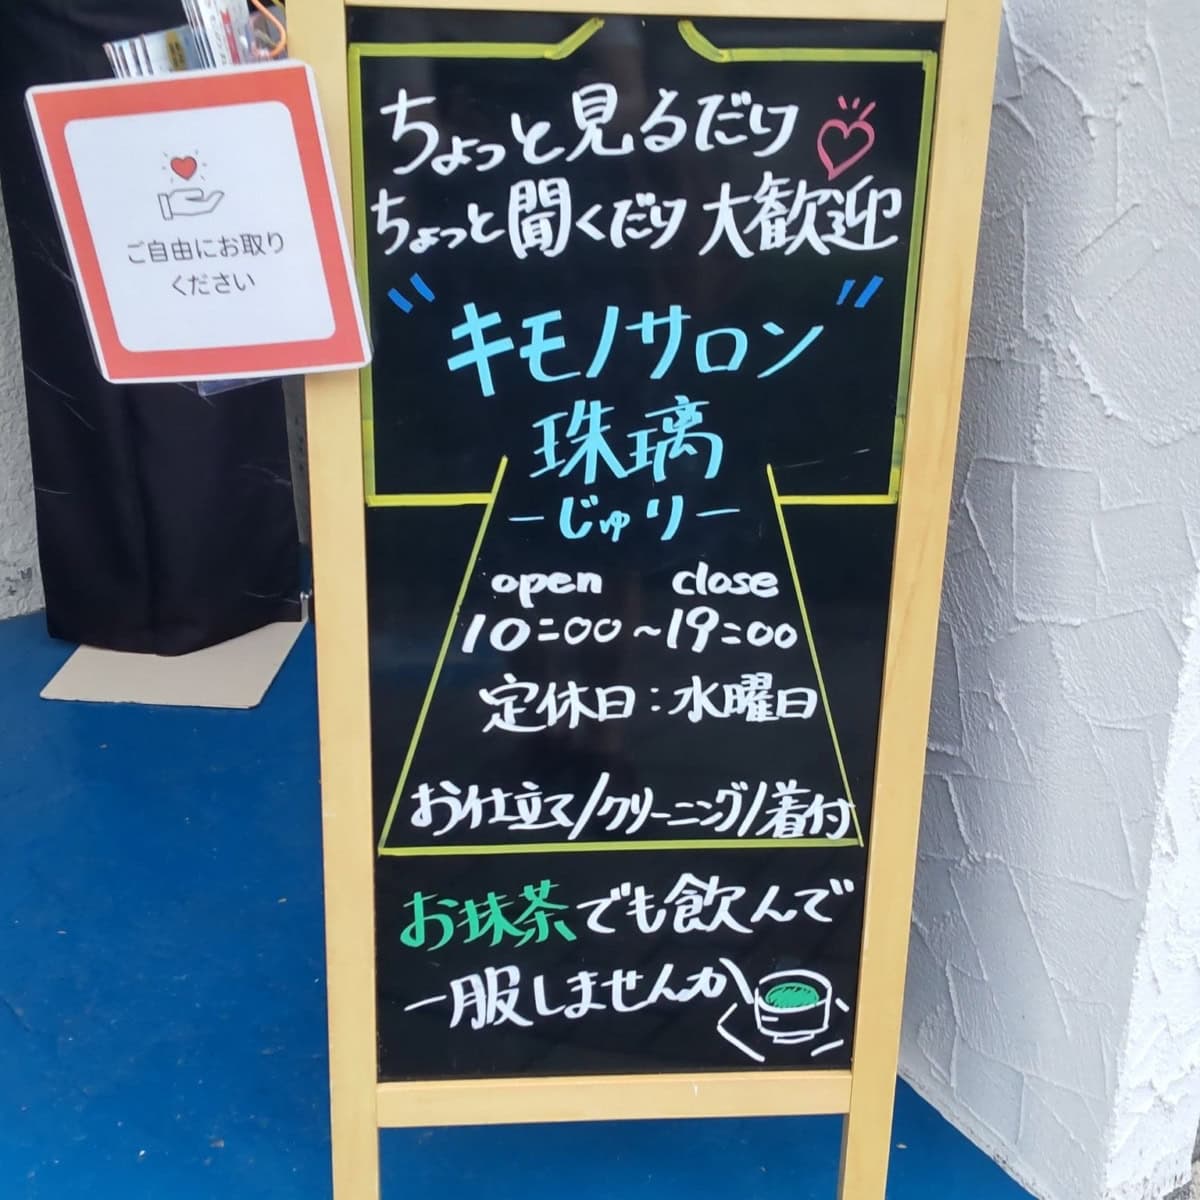 ちょっと見るだけ
ちょっと聞くだけ大歓迎
"キモノサロン"
珠璃
-じゅり-
open close
10:00~19:00
定休日:水曜日
お仕立て/クリーニング/着付
お抹茶でも飲んで
一服しませんか
ご自由にお取り
ください